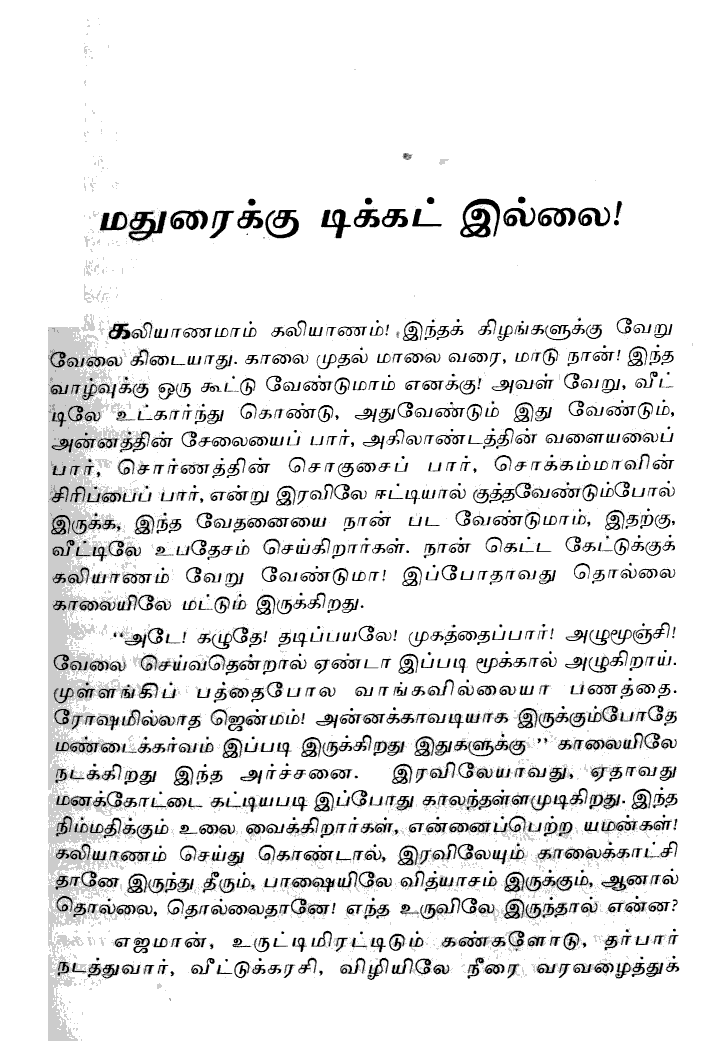 மதுரைக்கு டிக்கட் இல்லை!
கலியாணமாம் கலியாணம்! இந்தக் கிழங்களுக்கு வேறு
வேலை கிடையாது. காலை முதல் மாலை வரை, மாடு நான்! இந்த
வாழ்வுக்கு ஒரு கூட்டு வேண்டுமாம் எனக்கு! அவள் வேறு, வீட்
டிலே உட்கார்ந்து கொண்டு, அதுவேண்டும் இது வேண்டும்,
அன்னத்தின் சேலையைப் பார், அகிலாண்டத்தின் வளையலைப்
பார், சொர்ணத்தின் சொகுசைப் பார், சொக்கம்மாவின்
சிரிப்பைப் பார், என்று இரவிலே ஈட்டியால் குத்தவேண்டும்போல்
இருக்க, இந்த வேதனையை நான் பட வேண்டுமாம், இதற்கு,
வீட்டிலே உபதேசம் செய்கிறார்கள். நான் கெட்ட கேட்டுக்குக்
கலியாணம் வேறு வேண்டுமா! இப்போதாவது தொல்லை
காலையிலே மட்டும் இருக்கிறது.
“அடே! கழுதே! தடிப்பயலே! முகத்தைப்பார்! அழுமூஞ்சி!
வேலை செய்வதென்றால் ஏண்டா இப்படி மூக்கால் அழுகிறாய்.
முள்ளங்கிப் பத்தைபோல வாங்கவில்லையா பணத்தை.
ரோஷமில்லாத ஜென்மம்! அன்னக்காவடியாக இருக்கும்போதே
மண்டைக்கர்வம் இப்படி இருக்கிறது இதுகளுக்கு ” காலையிலே
நடக்கிறது இந்த அர்ச்சனை. இரவிலேயாவது, ஏதாவது
மனக்கோட்டை கட்டியபடி இப்போது காலந்தள்ளமுடிகிறது. இந்த
நிம்மதிக்கும் உலை வைக்கிறார்கள், என்னைப்பெற்ற யமன்கள்!
கலியாணம் செய்து கொண்டால், இரவிலேயும் காலைக்காட்சி
தானே இருந்து தீரும், பாஷையிலே வித்யாசம் இருக்கும், ஆனால்
தொல்லை, தொல்லைதானே! எந்த உருவிலே இருந்தால் என்ன?
எஜமான், உருட்டிமிரட்டிடும் கண்களோடு, தர்பார்
நடத்துவார், வீட்டுக்கரசி, விழியிலே நீரை வரவழைத்துக்